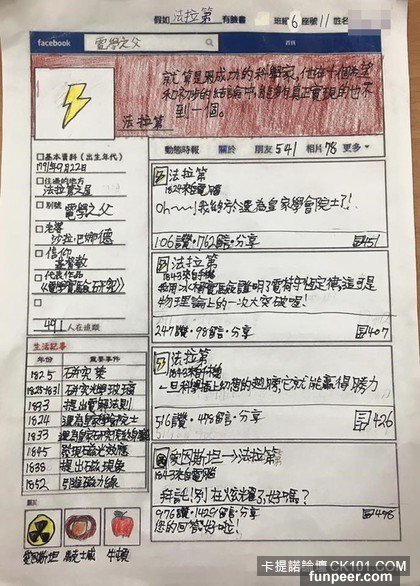 假如 法拉第 有臉書 班級6座號11姓名
facebook 電學之父 首頁
就算是最成功的科學家,他在十個希望
和初步的結論中,能夠真正實現也不
到一個。
法拉第
動態時報 關於 朋友541 相片78 更多
□基本資料(出生年代)
1791年9月22日
□住過的地方
□別號
電學之父
□老婆
□信仰
基督教
□代表作品
《電學實驗研究》
491人在追蹤
生活記事
年份 重要事件
1825 研究苯
1825-1831 研究光學玻璃
1833 提出電解法則
1824 選為皇家學會院士
1833
1845 發現磁光效應
1838
1852 引進磁力線
法拉第
1824來自電腦
Oh~~!我終於選為皇家學會院士了!
106讚·762留言·分享 451
法拉第
1843來自手機
我用冰桶實驗證明了電荷守恆定律,這可是
物理論上的一次大突破喔!
247讚·98留言·分享 407
法拉第
一旦科學插上幻想的翅膀它就能贏得勝力
516讚·495留言·分享 426
愛因斯坦→法拉第
1843來自電腦
拜託!別在炫耀了好嗎?
976讚·1429留言·分享 498
您的回答好啦!
愛因斯坦 馬克士威 牛頓
卡提諾論壇 CK101.COM
funpeer.com